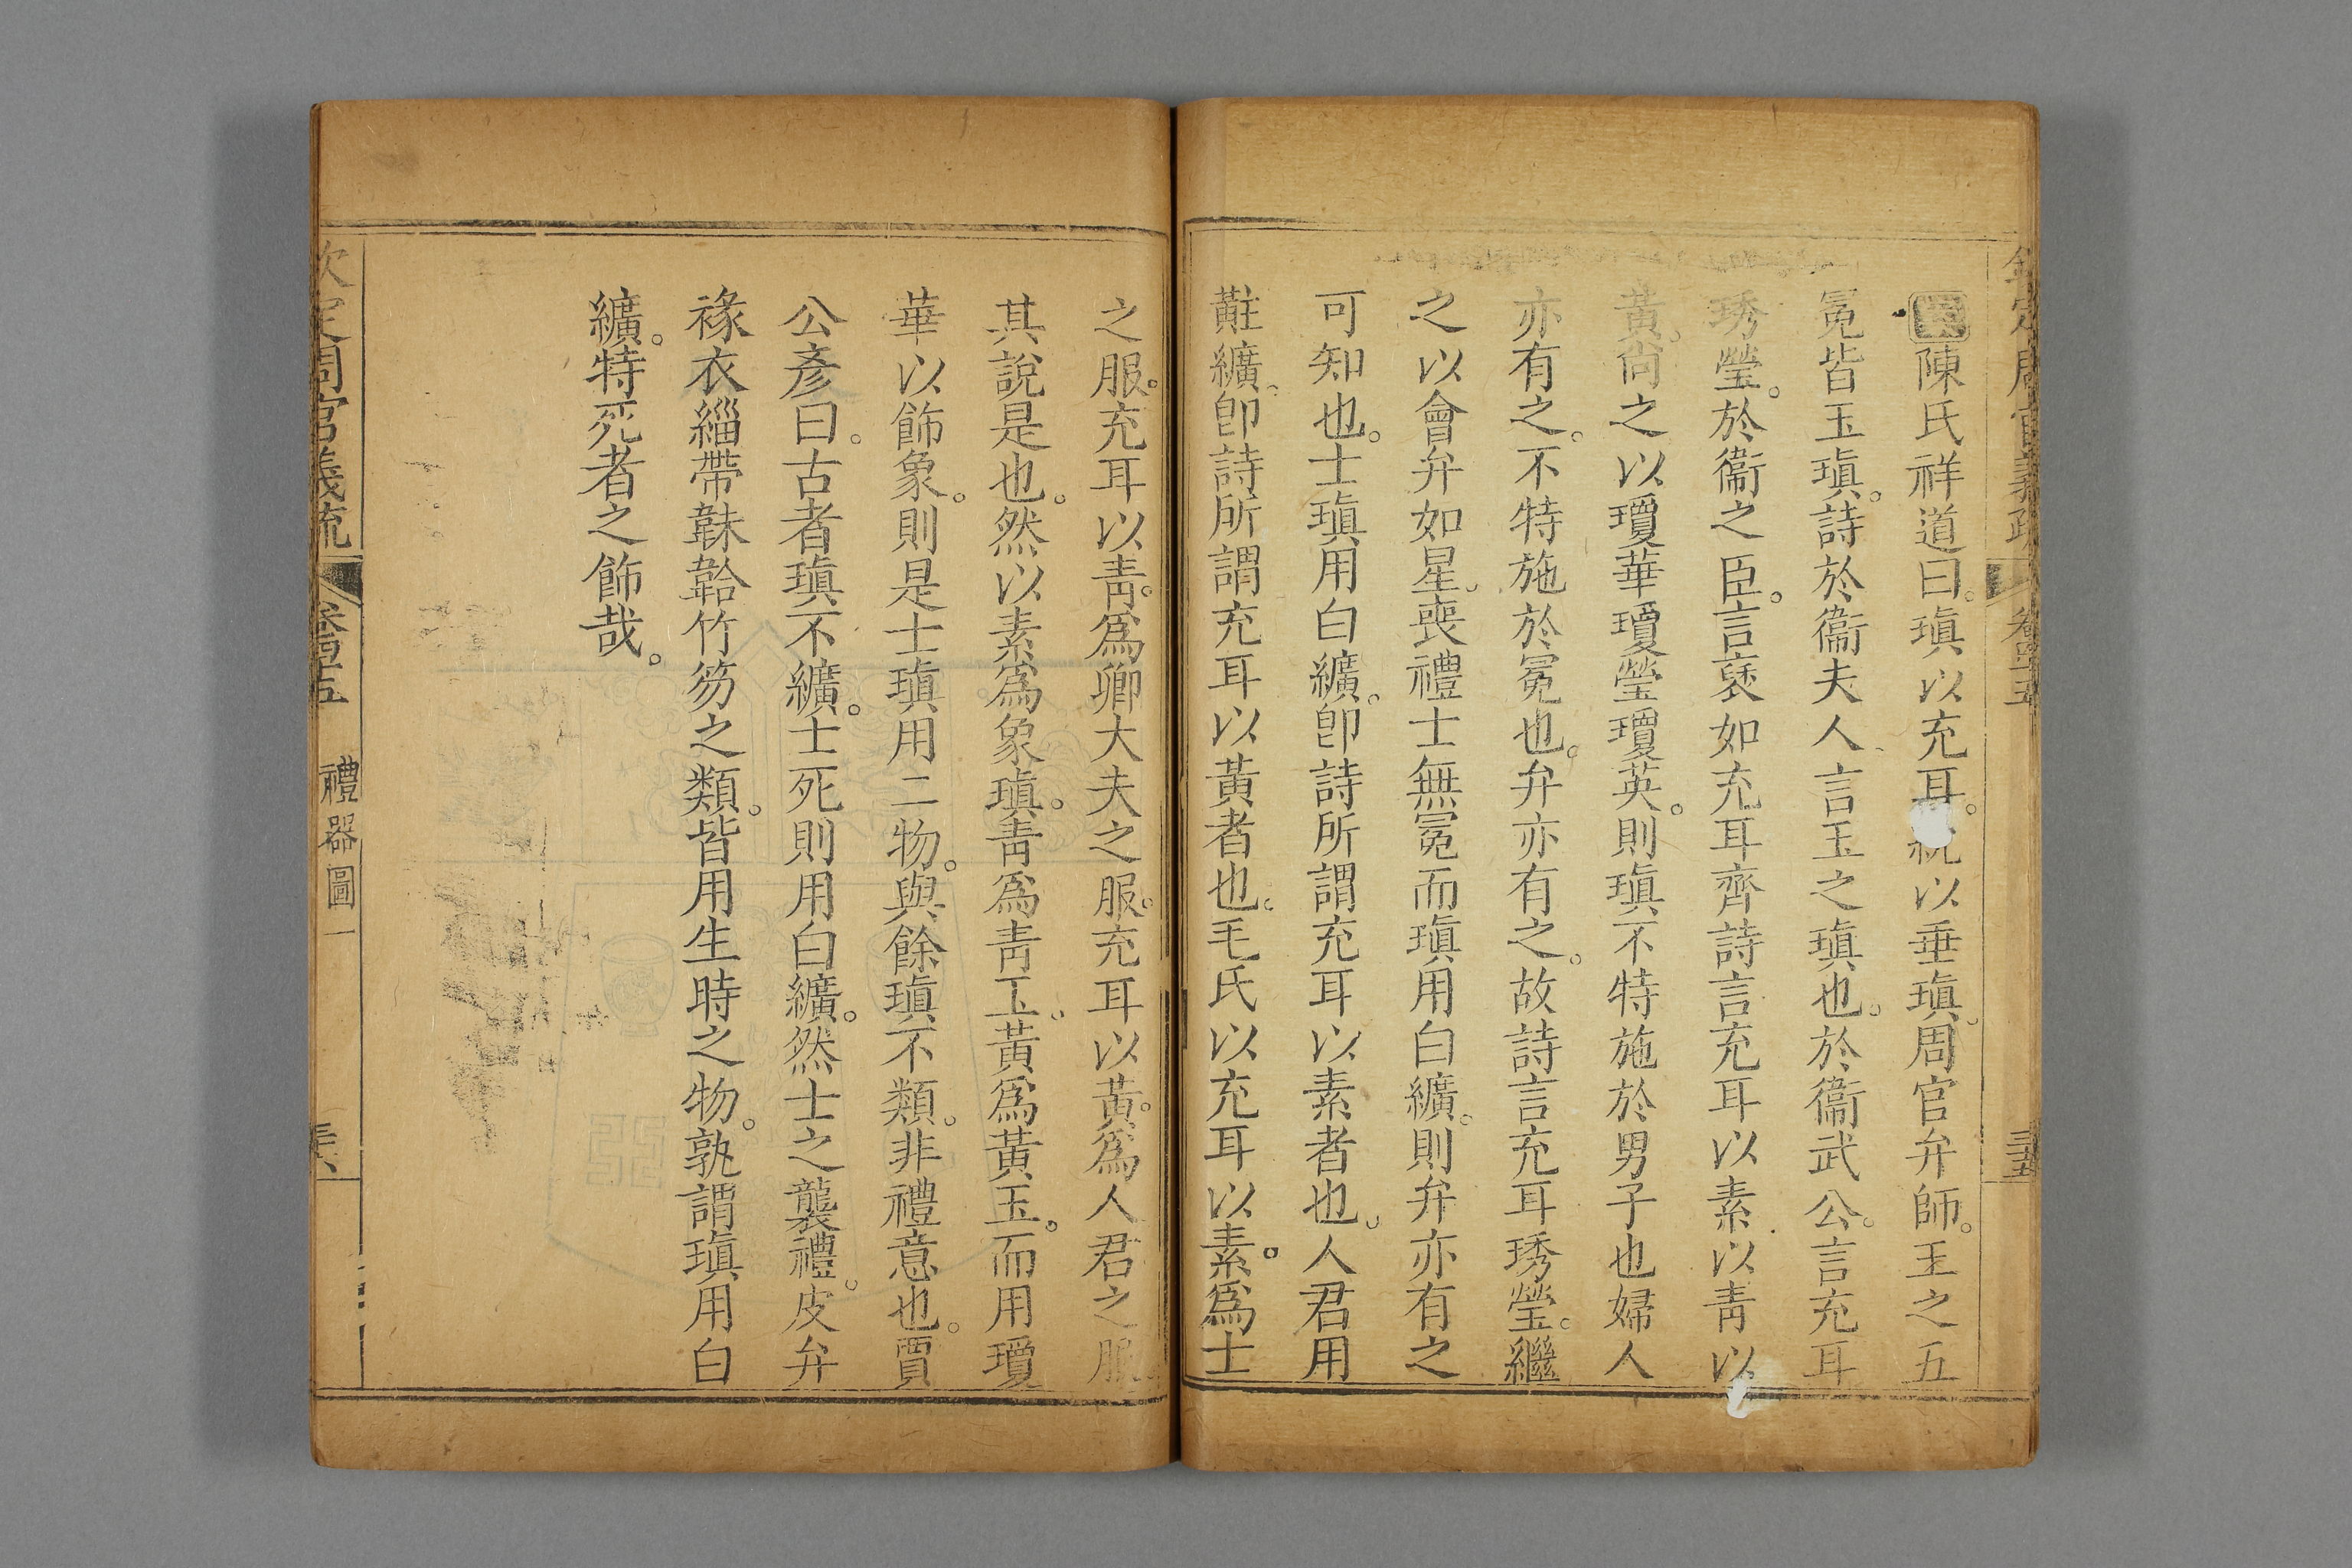 陳氏祥道曰。瑱以充耳。紞以垂瑱。周官弁師。王之五
冕皆玉瑱。詩於衞夫人、言玉之瑱也。於衞武公。言充耳
琇瑩。於衞之臣。言褎如充耳齊詩言充耳以素以靑以
黃。尙之以瓊華瓊瑩瓊英。則瑱不特施於男子也婦人
亦有之。不特施於冕也。弁亦有之。故詩言充耳琇瑩。繼
之以會弁如星。喪禮士無冕而瑱用白纊。則弁亦有之
可知也。士瑱用白纊。卽詩所謂充耳以素者也。人君用
黈纊。卽詩所謂充耳以黃者也。毛氏以充耳以素。爲士
之服。充耳以靑。爲卿大夫之服。充耳以黃。爲人君之服
其說是也。然以素爲象瑱。靑爲靑玉。黃爲黃玉。而用瓊
華以飾象。則是士瑱用二物。與餘瑱不類。非禮意也。賈
公彥曰。古者瑱不纊。士死則用白纊。然士之襲禮。皮弁
褖衣緇帶韎韐竹笏之類。皆用生時之物。孰謂瑱用白
纊。特死者之飾哉。
欽定周官義疏 卷四十五 禮器圖一